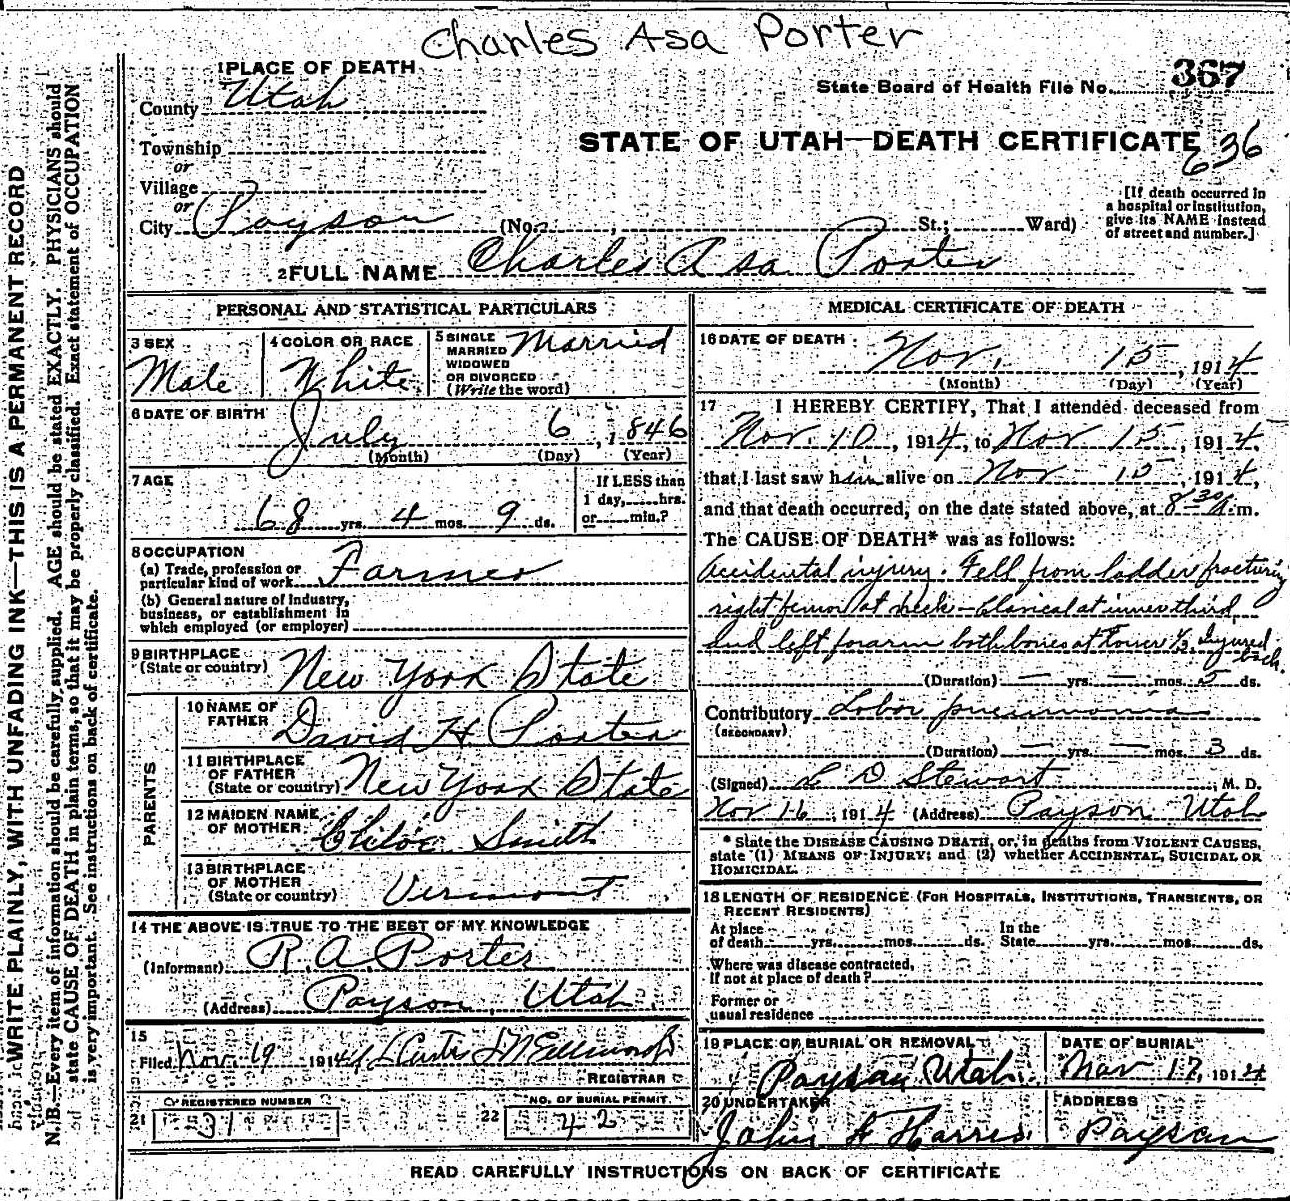 Charles Asa Porter
1 PLACE OF DEATH
County Utah
State Board of Health File No. 367
STATE OF UTAH—DEATH CERTIFICATE
636
Township
or
Village
or
City Payson (No. , St.; Ward)
[If death occurred in
a hospital or institution,
give its NAME instead
of street and number.]
2 FULL NAME Charles Asa Porter
PERSONAL AND STATISTICAL PARTICULARS
3 SEX
Male
4 COLOR OR RACE
White
5 SINGLE
MARRIED
WIDOWED
OR DIVORCED
(Write the word)
Married
6 DATE OF BIRTH
July 6, 1846
(Month) (Day) (Year)
7 AGE
68 yrs. 4 mos. 9 ds.
If LESS than
1 day, hrs.
or min.?
8 OCCUPATION
(a) Trade, profession or
particular kind of work Farmer
(b) General nature of Industry,
business, or establishment in
which employed (or employer)
9 BIRTHPLACE
(State or country) New York State
PARENTS
10 NAME OF
FATHER David H. Porter
11 BIRTHPLACE
OF FATHER
(State or country) New York State
12 MAIDEN NAME
OF MOTHER Smith
13 BIRTHPLACE
OF MOTHER
(State or country) Vermont
14 THE ABOVE IS TRUE TO THE BEST OF MY KNOWLEDGE
(Informant) R. A. Porter
(Address) Payson, Utah.
15
Filed Nov. 19 1914
REGISTRAR
21 REGISTERED NUMBER
31
22 NO. OF BURIAL PERMIT
42
MEDICAL CERTIFICATE OF DEATH
16 DATE OF DEATH
Nov. 15, 1914
(Month) (Day) (Year)
17 I HEREBY CERTIFY, That I attended deceased from
Nov. 10, 1914, to Nov 15, 1914,
that I last saw him alive on Nov 15, 1914,
and that death occurred, on the date stated above, at 8 30 A. m.
The CAUSE OF DEATH* was as follows:
Accidental injury. Fell from ladder fracturing
right femor at neck - Clavical at inner third,
and left forarm both bones at lower 1/3. Injured
back.
(Duration) — yrs. — mos. 5 ds.
Contributory Lobar pneumonia
(SECONDARY)
(Duration) — yrs. — mos. 3 ds.
(Signed) L D Stewart, M. D.
Nov 16, 1914 (Address) Payson Utah
* State the DISEASE CAUSING DEATH, or, in deaths from VIOLENT CAUSES,
state (1) MEANS OF INJURY; and (2) whether ACCIDENTAL, SUICIDAL OR
HOMICIDAL.
18 LENGTH OF RESIDENCE (FOR HOSPITALS, INSTITUTIONS, TRANSIENTS, OR
RECENT RESIDENTS)
At place
of death yrs. mos. ds.
In the
State yrs. mos. ds.
Where was disease contracted,
If not at place of death?
Former or
usual residence
19 PLACE OF BURIAL OR REMOVAL
Payson Utah.
DATE OF BURIAL
Nov 17, 1914
20 UNDERTAKER
John Harris
ADDRESS
Payson
READ CAREFULLY INSTRUCTIONS ON BACK OF CERTIFICATE
WRITE PLAINLY, WITH UNFADING INK—THIS IS A PERMANENT RECORD
N. B.—Every item of information should be carefully supplied. AGE should be stated EXACTLY. PHYSICIANS should
state CAUSE OF DEATH in plain terms, so that it may be properly classified. Exact statement of OCCUPATION
is very important. See instructions on back of certificate.